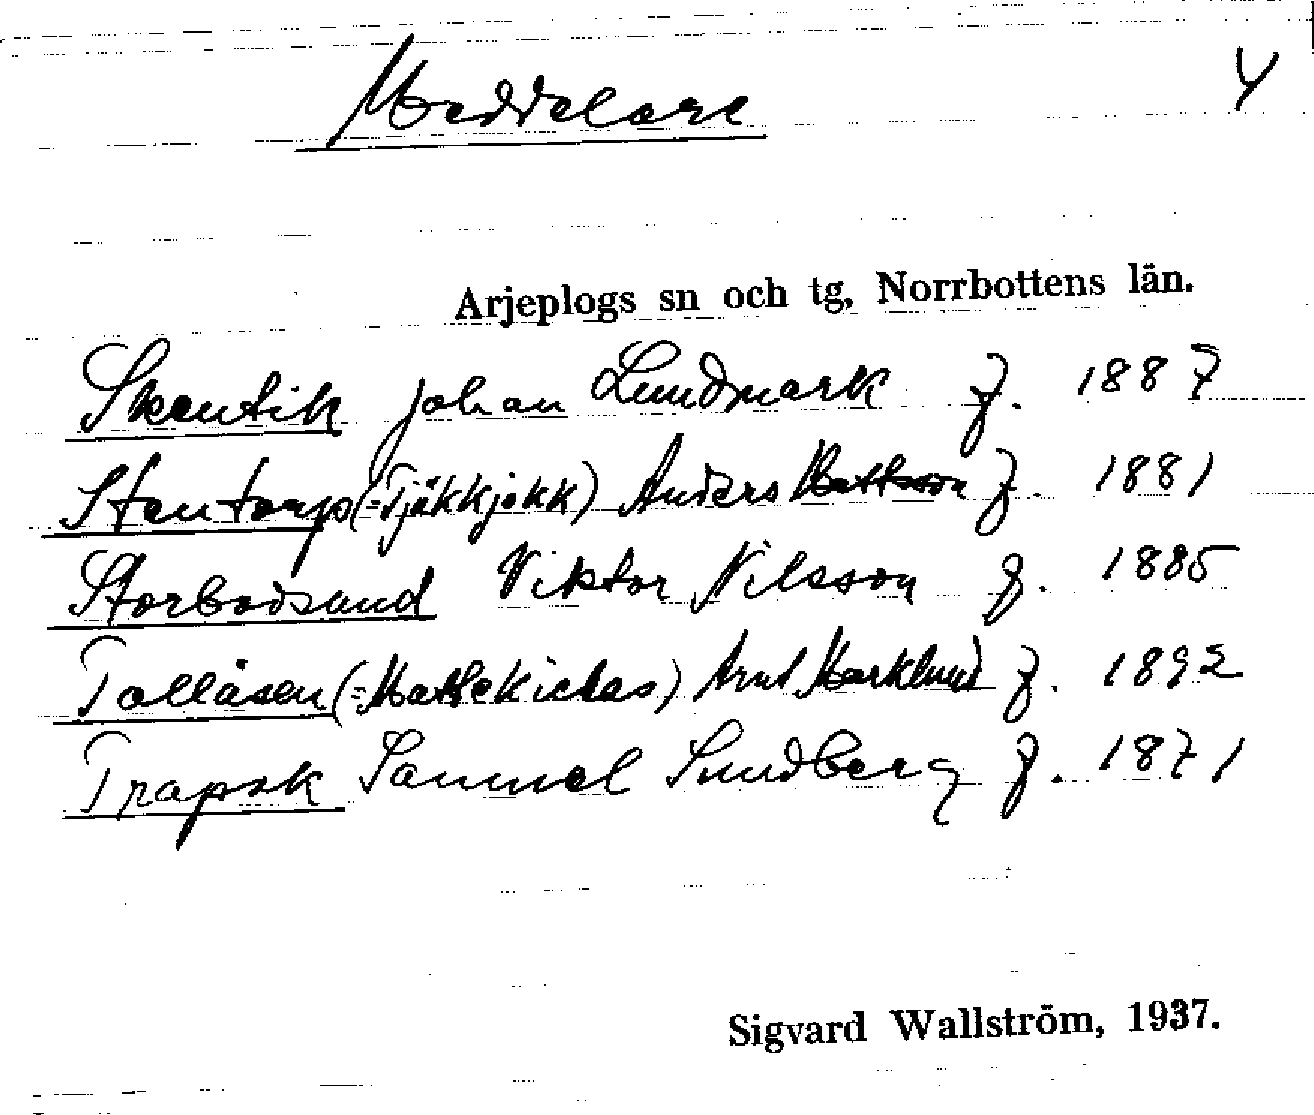 Meddelare 4
Arjeplogs sn och tg, Norrbottens län.
Skeutik Johan Lundmark f. 1887
Stentorp (=Tjäkkjokk) Anders Mattsson f. 1881
Storbodsand Viktor Nilsson f. 1885
Tallåsen (= ) Arut Marklund f. 1892
Trapsk Samuel Sundberg f. 1871
Sigvard Wallström, 1937.